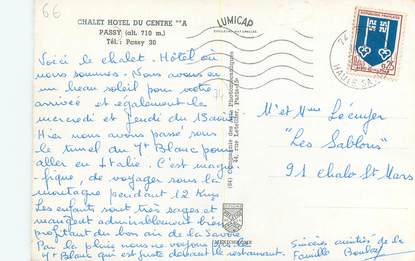 66
CHALET HOTEL DU CENTRE **A
PASSY (alt. 710 m.)
Tél.: Passy 30
LUMICAP
Voici le chalet-Hôtel où
nous sommes. Nous avons eu
un beau soleil pour notre
arrivée et également le
mercredi et jeudi du 15 août
Hier nous avons passé sous
le tunel du Mt Blanc pour
aller en Italie. C'est magni-
fique, de voyager sous la
montagne pendant 12 Kms
Les enfants sont très sages et
mangent admirablement bien
profitant du bon air de la Savoie
Par la pluie nous ne voyons pas le
Mt Blanc qui est juste devant le restaurant.
(94) Compagnie des Arts Photomécaniques
44, rue Letellier, Paris-15
74
HAUTE SAVOIE
0,25
Mr et Mme Lécuyer
"Les Sablons"
91 Chalo St Mars
Sincères amitiés de la
Famille